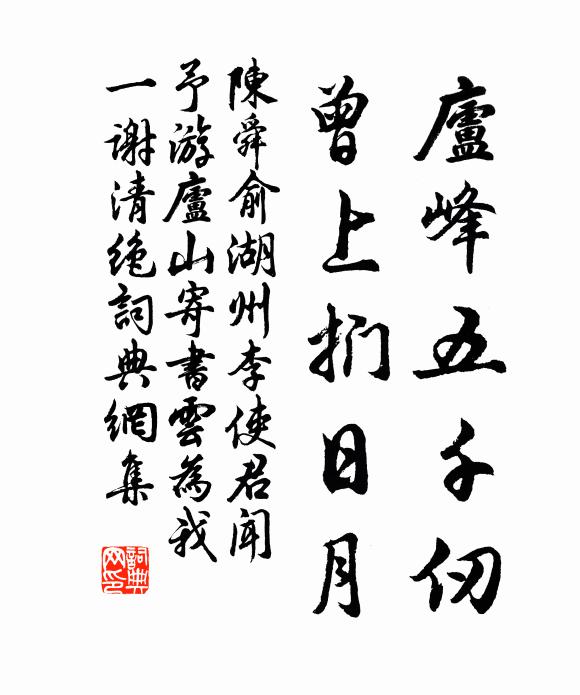 廬峰五千仞
曾上捫日月
陳舜俞湖州李使君聞
予游廬山寄書雲為我
一謝清絶詞典網集
詞典网印